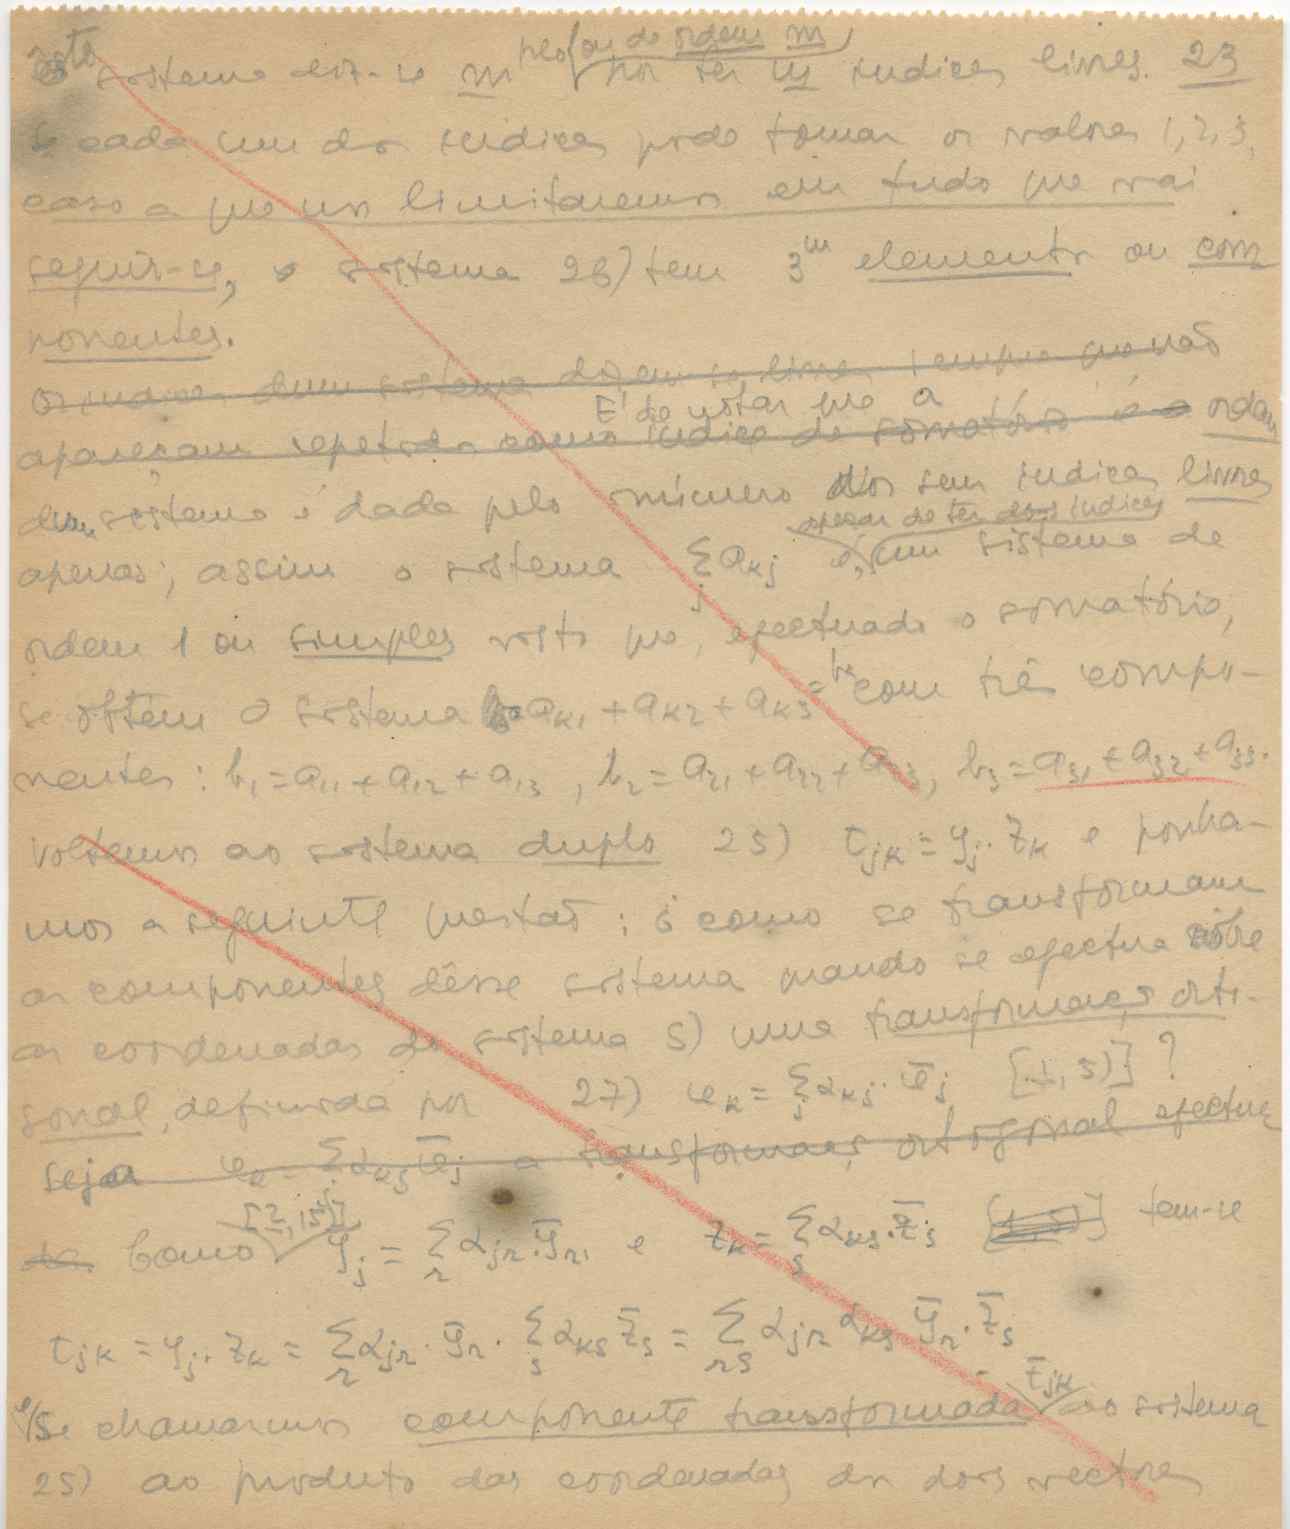 este sistema diz-se m^plo (ou de ordem m) por ter m indices livres. 23
Se cada um dos indices pode tomar os valores 1, 2, 3,
caso a que nos limitaremos em tudo que vai
seguir-se, o sistema 26) tem 3^m elementos ou com
ponentes.
Os indices dum sistema dizem-se livres sempre que não
apareçam repetidos como indice de somatório é a É de notar que a ordem
dum sistema é dada pelo número dos seus indices livres
apenas; assim o sistema Σ_j a_kj é, apesar de ter dois indices, um sistema de
ordem 1 ou simples visto que, efectuado o somatório,
se obtem o sistema a_k1 + a_k2 + a_k3 = b_k com três compo-
nentes: b_1 = a_11 + a_12 + a_13, b_2 = a_21 + a_22 + a_23, b_3 = a_31 + a_32 + a_33.
Voltemos ao sistema duplo 25) t_jk = y_j . z_k e ponha-
mos a seguinte questão: como se transformam
as componentes dêsse sistema quando se efectua sôbre
as coordenadas do sistema S) uma transformação orto-
gonal, definida por 27) e_k = Σ_j α_kj . ē_j [1, 5)] ?
seja e_k = Σ_j α_kj ē_j a transformação ortogonal efectua
da. Como [2, 15)] y_j = Σ_r α_jr . ȳ_r, e z_k = Σ_s α_ks . z̄_s [1, 5)] tem-se
t_jk = y_j . z_k = Σ_r α_jr . ȳ_r . Σ_s α_ks z̄_s = Σ_rs α_jr α_ks ȳ_r . z̄_s
e/Se chamarmos componente transformada t̄_jk do sistema
25) ao produto das coordenadas dos dois vectores